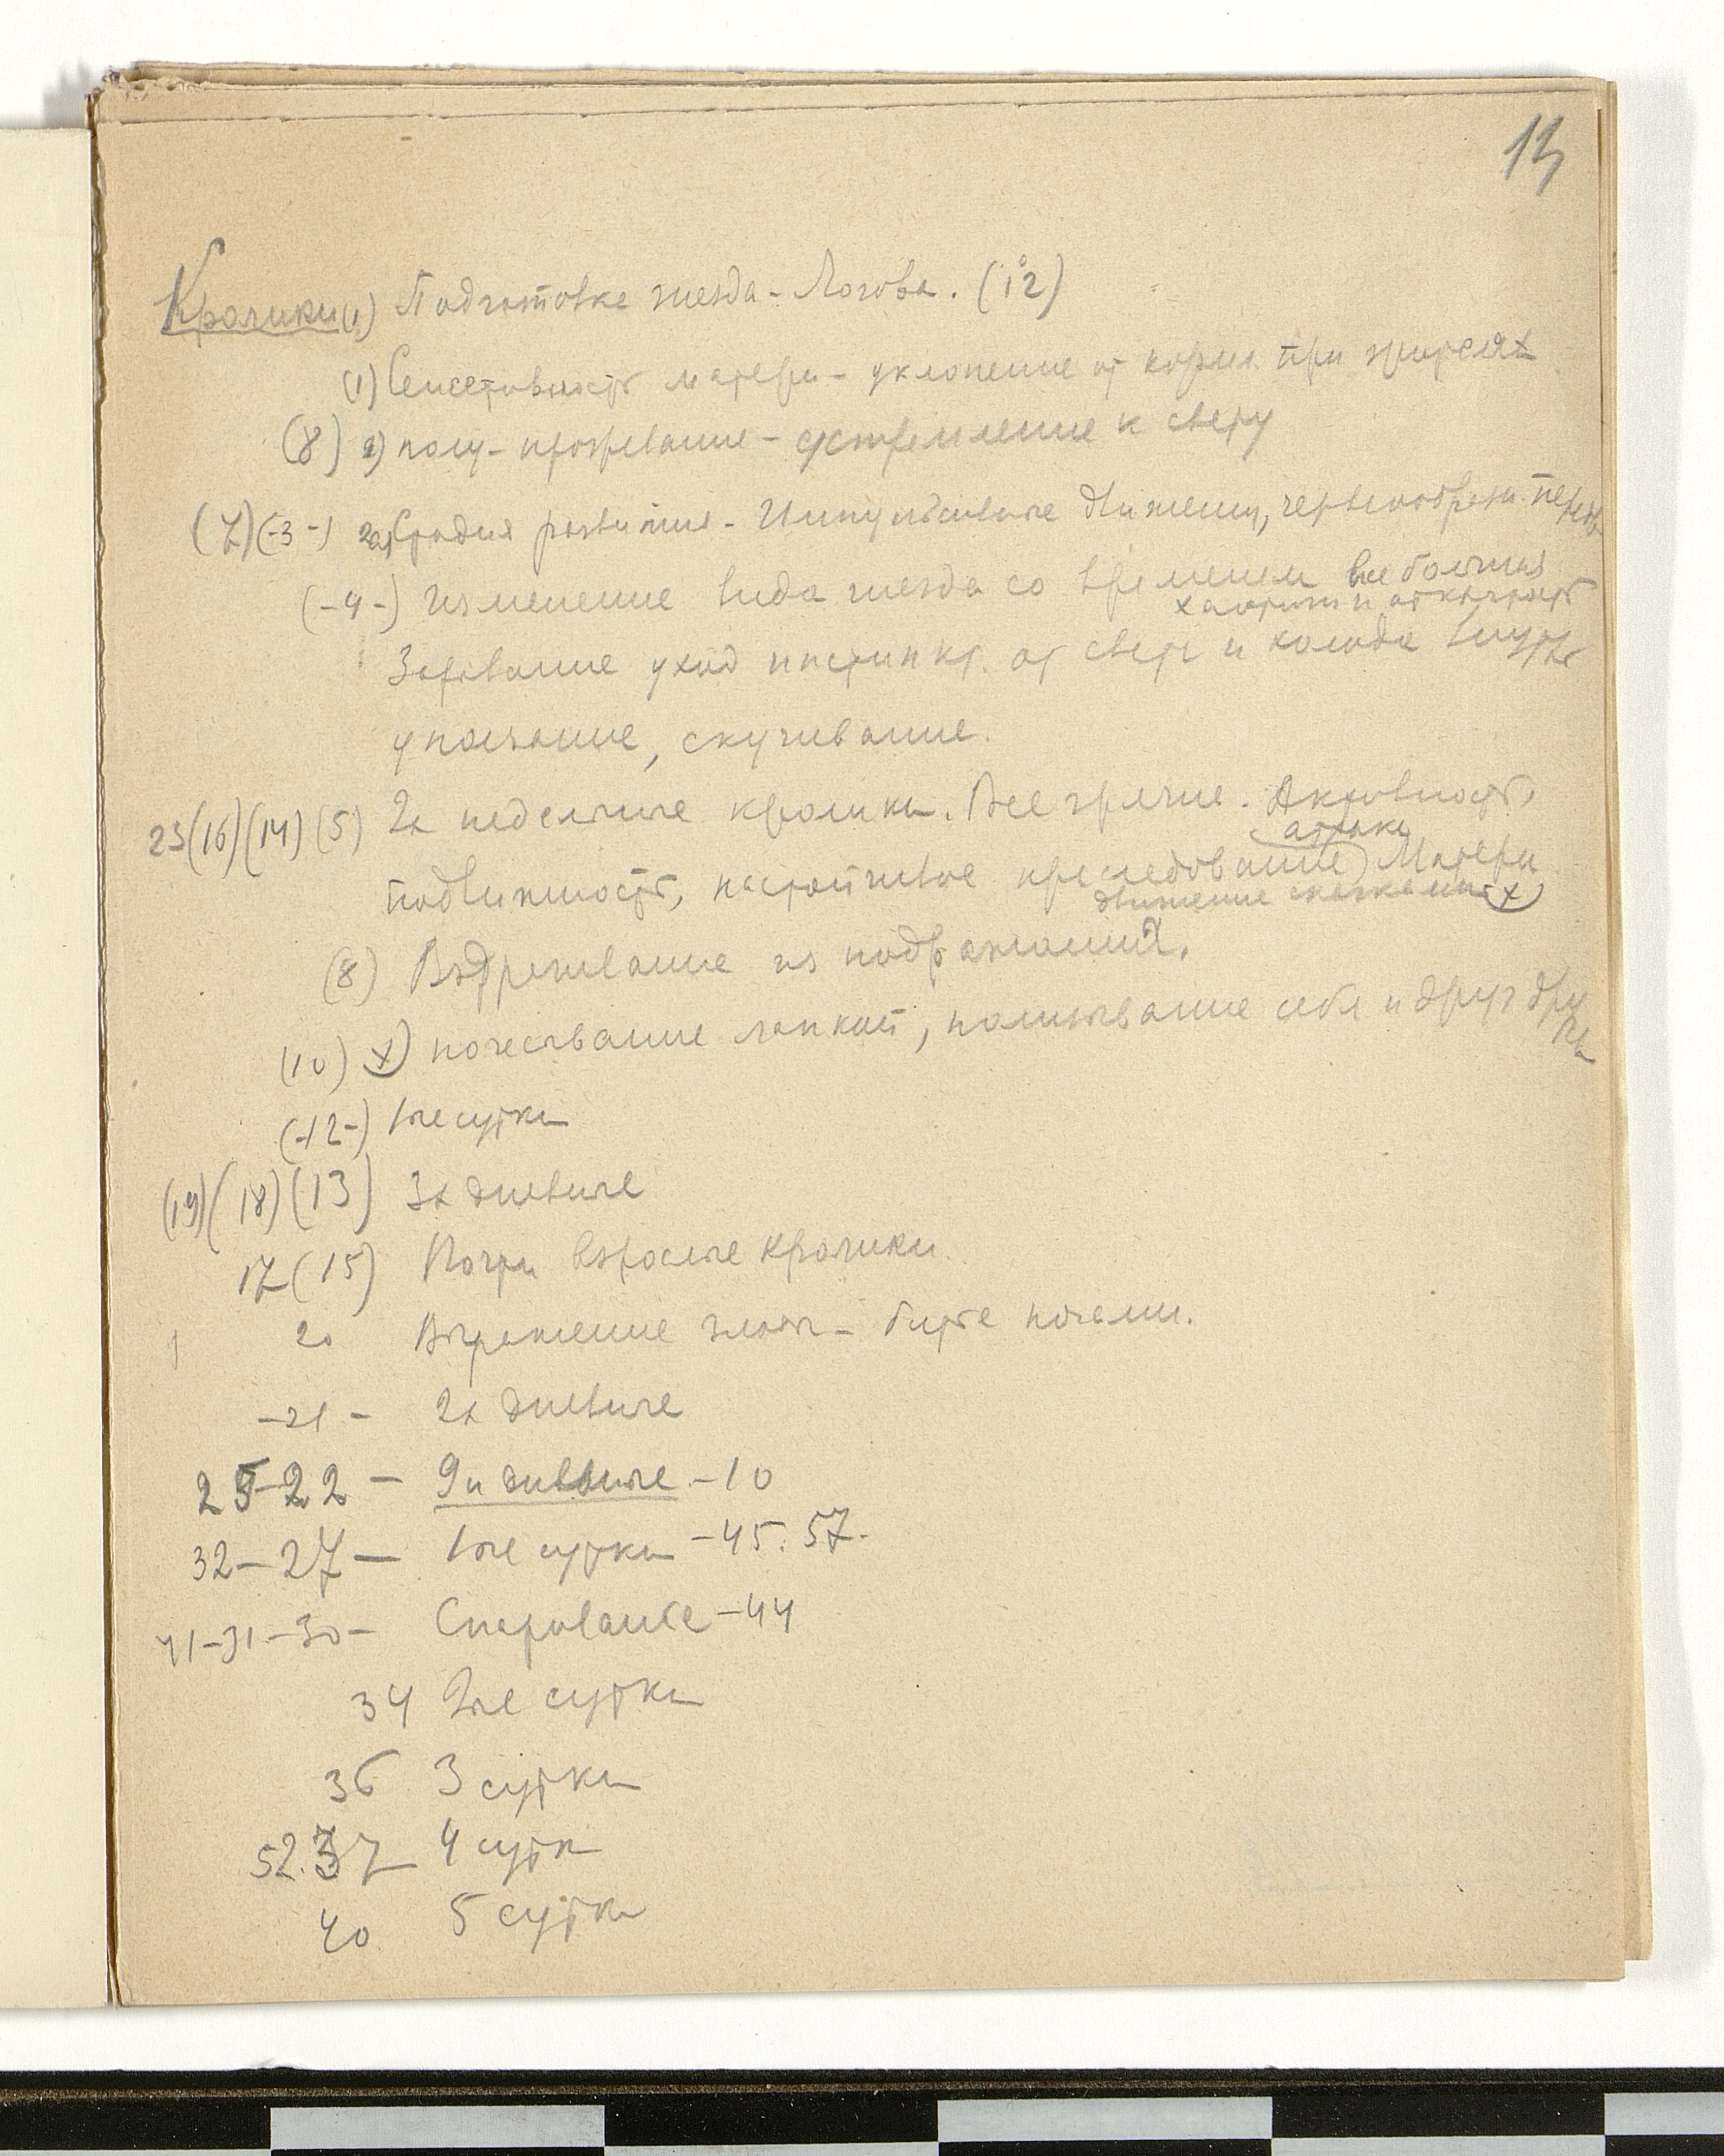 13
Кролики (1) Подготовка гнезда - Логова. (12)
(1) Сенситивность матери - уклонение от кормл. при зрителях
(8) 2) полу-прозревание - устремление к свету
(7) (-3-) 2а) Стадия развития - Импульсивные движения, червеобразн.
(-4-) Изменение вида гнезда со временем все большая
хаотичн и открытость
Зарывание уход инстинкт. от света и холода внутрь
уползание, скучивание.
23 (16) (14) (5) 2х недельные кролики. Все зрячие. Активность,
атака
подвижность, настойчивое преследование Матери
движение скачками x)
(8) Вздрагивание из подражания.
(10) x) почесывание лапкой, полизывание себя и друг друга
(-12-) 1ые сутки
(19) (18) (13) 3х дневные
17 (15) Почти взрослые кролики.
20 Выражение злост - битье ногами.
-21- 2х дневные
25-22 - 9и дневные - 10
32-27- 1ые сутки - 45. 57.
41-31-30- Спаривание - 44
34 2ые сутки
36 3 сутки
52. 37 4 сутк
40 5 сутки